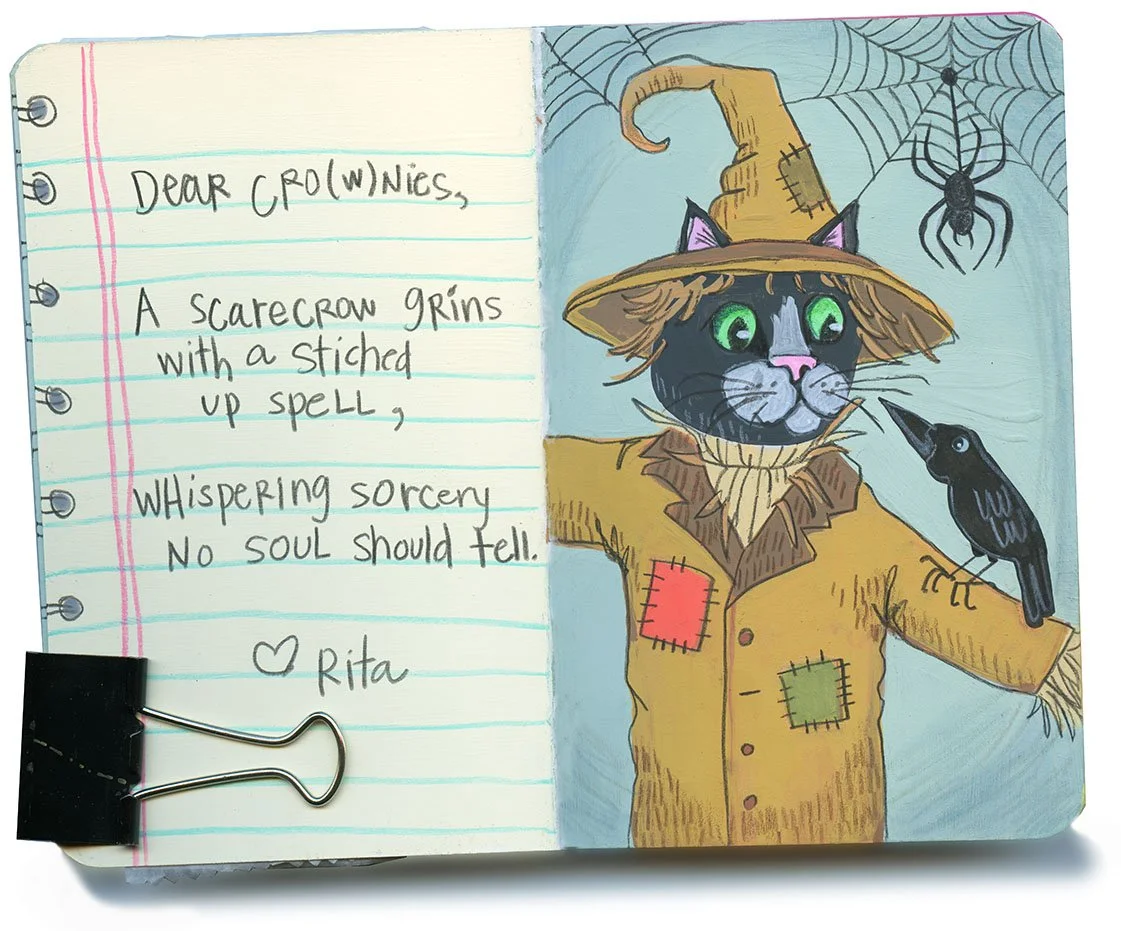 Dear Cro(w)nies,
A scarecrow grins
with a stiched
up spell,
Whispering sorcery
No soul should tell.
♡ Rita